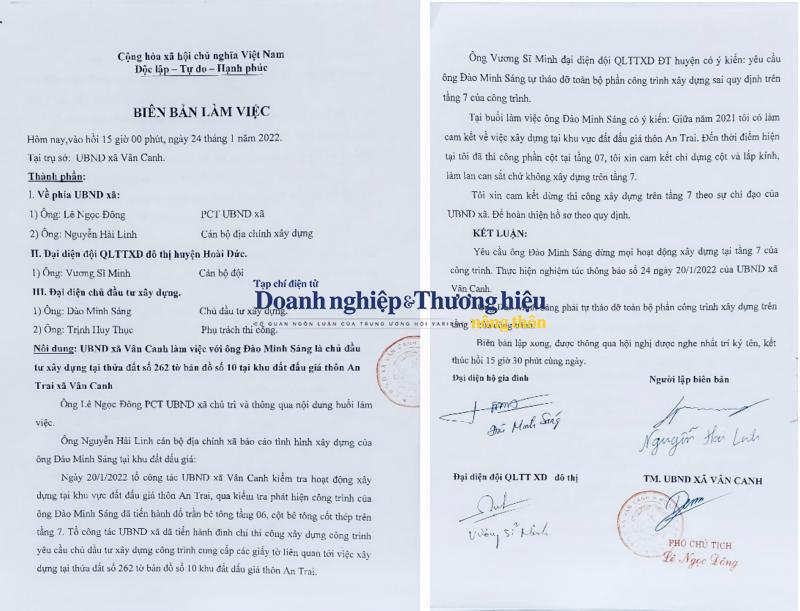 Cộng hòa xã hội chủ nghĩa Việt Nam
Độc lập – Tự do – Hạnh phúc
BIÊN BẢN LÀM VIỆC
Hôm nay,vào hồi 15 giờ 00 phút, ngày 24 tháng 1 năm 2022.
Tại trụ sở: UBND xã Vân Canh.
Thành phần:
I. Về phía UBND xã:
1) Ông: Lê Ngọc Đông PCT UBND xã
2) Ông: Nguyễn Hải Linh Cán bộ địa chính xây dựng
II. Đại diện đội QLTTXD đô thị huyện Hoài Đức.
1) Ông: Vương Sĩ Minh Cán bộ đội
III. Đại diện chủ đầu tư xây dựng.
1) Ông: Đào Minh Sáng Chủ đầu tư xây dựng.
2) Ông: Trịnh Huy Thục Phụ trách thi công.
Nội dung: UBND xã Vân Canh làm việc với ông Đào Minh Sáng là chủ đầu
tư xây dựng tại thửa đất số 262 tờ bản đồ số 10 tại khu đất đấu giá thôn An
Trai xã Vân Canh
Ông Lê Ngọc Đông PCT UBND xã chủ trì và thông qua nội dung buổi làm
việc.
Ông Nguyễn Hải Linh cán bộ địa chính xã báo cáo tình hình xây dựng của
ông Đào Minh Sáng tại khu đất đấu giá:
Ngày 20/1/2022 tổ công tác UBND xã Vân Canh kiểm tra hoạt động xây
dựng tại khu vực đất đấu giá thôn An Trai, qua kiểm tra phát hiện công trình của
ông Đào Minh Sáng đã tiến hành đổ trần bê tông tầng 06, cột bê tông cốt thép trên
tầng 7. Tổ công tác UBND xã đã tiến hành đình chỉ thi công xây dựng công trình
yêu cầu chủ đầu tư xây dựng công trình cung cấp các giấy tờ liên quan tới việc xây
dựng tại thửa đất số 262 tờ bản đồ số 10 khu đất đấu giá thôn An Trai.
Tạp chí điện tử
Doanh nghiệp & Thương hiệu
CƠ QUAN NGÔN LUẬN CỦA TRUNG ƯƠNG HỘI
nông thôn
Ông Vương Sĩ Minh đại diện đội QLTTXD ĐT huyện có ý kiến: yêu cầu
ông Đào Minh Sáng tự tháo dỡ toàn bộ phần công trình xây dựng sai quy định trên
tầng 7 của công trình.
Tại buổi làm việc ông Đào Minh Sáng có ý kiến: Giữa năm 2021 tôi có làm
cam kết về việc xây dựng tại khu vực đất đấu giá thôn An Trai. Đến thời điểm hiện
tại tôi đã thi công phần cột tại tầng 07, tôi xin cam kết chỉ dựng cột và lắp kính,
làm lan can sắt chứ không xây dựng trên tầng 7.
Tôi xin cam kết dừng thi công xây dựng trên tầng 7 theo sự chỉ đạo của
UBND xã. Để hoàn thiện hồ sơ theo quy định.
KẾT LUẬN:
Yêu cầu ông Đào Minh Sáng dừng mọi hoạt động xây dựng tại tầng 7 của
công trình. Thực hiện nghiêm túc thông báo số 24 ngày 20/1/2022 của UBND xã
Vân Canh.
Minh Sáng phải tự tháo dỡ toàn bộ phần công trình xây dựng trên
tầng
Biên bản lập xong, được thông qua hội nghị được nghe nhất trí ký tên, kết
thúc hồi 15 giờ 30 phút cùng ngày.
Đại diện hộ gia đình Người lập biên bản
Đào Minh Sáng
Nguyễn Hải Linh
Đại diện đội QLTT XD đô thị TM. UBND XÃ VÂN CANH
Vương Sĩ Minh
PHÓ CHỦ TỊCH
Lê Ngọc Đông